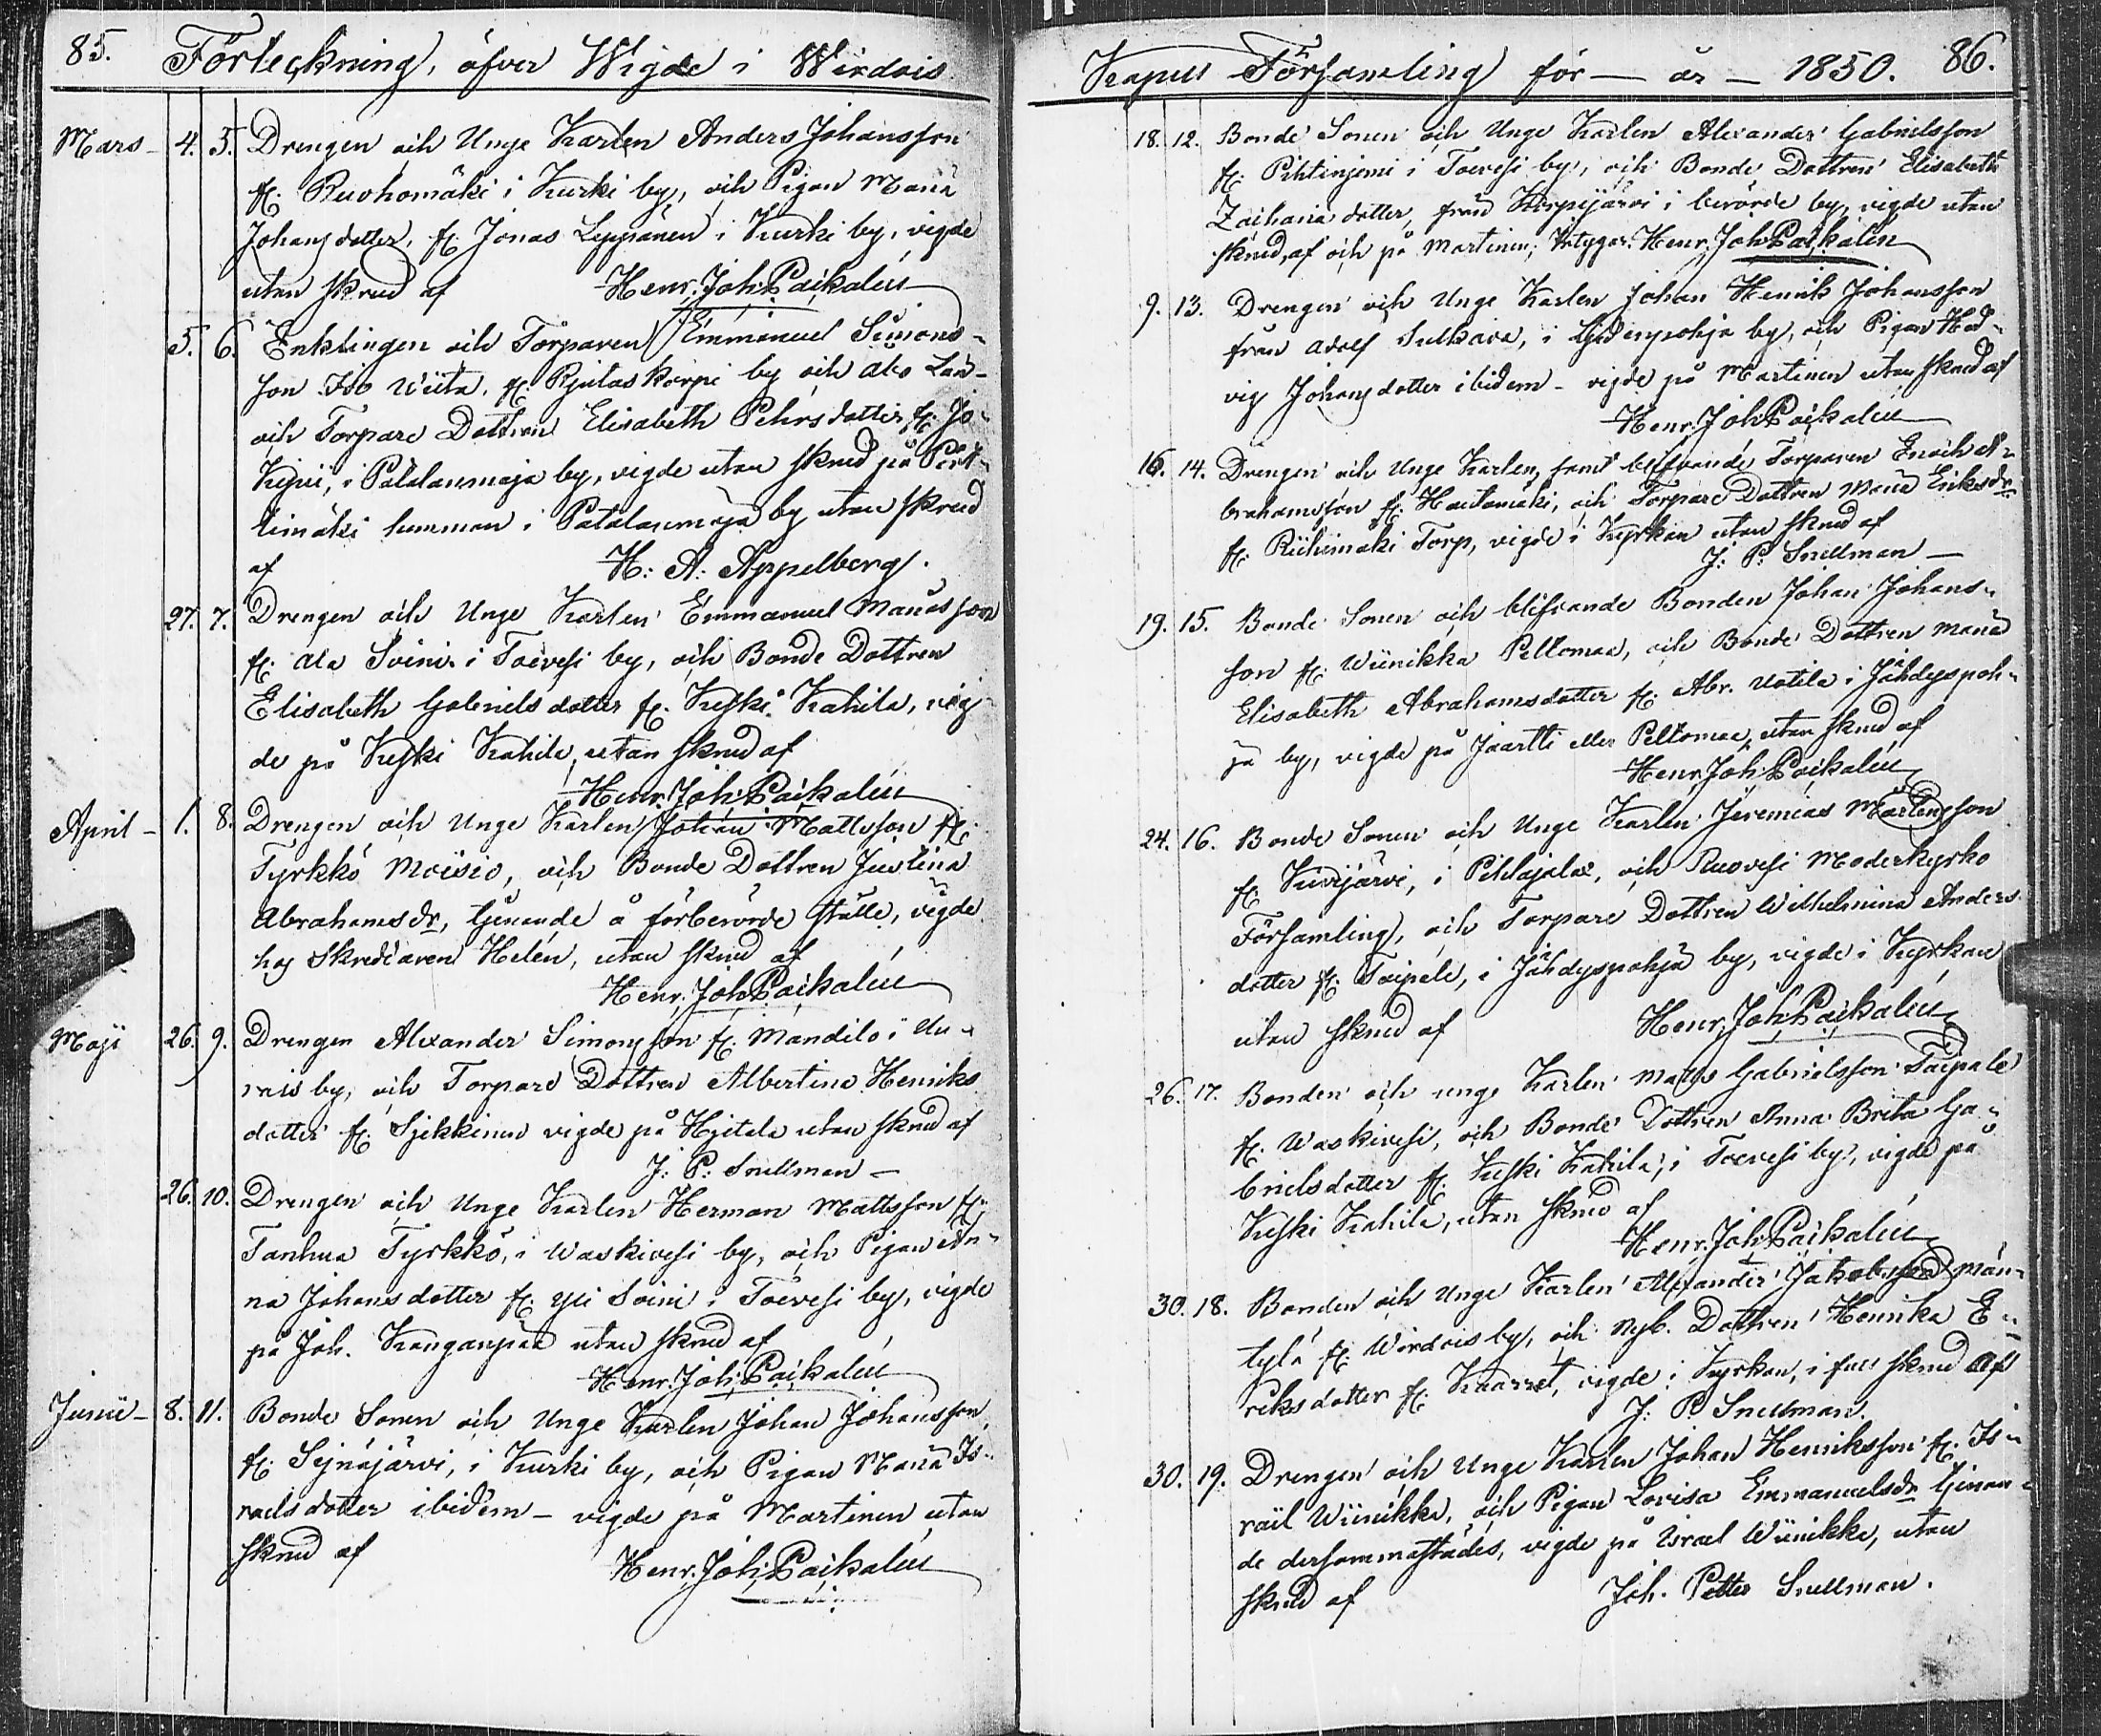 85. Förteckning, öfver Wigde i Wirdois
Mars - 4. 5. Drengen och Unge Karlen Anders Johansson
fr. Ruohomäki i Kurki by, och Pigan Maria
Johansdotter, fr. Jonas Leppänen i Kurki by, vigde
utan skrud af Henr. Joh. Paikalén
5. 6. Enklingen och Torparen Emmanuel Simons-
son Iso Wiita, fr. korpi by och
och Torpare Dottren Elisabeth Pehrsdotter, fr. Jo-
Kejui, i Patalanmaja by, vigde utan skrud på Pert-
timäki hemman i Patalanmaja by utan skrud
af H: A: Appelberg.
27. 7. Drengen och Unge Karlen Emmanuel Manasson
fr. Ala Soini i Toevesi by, och Bonde Dottren
Elisabeth Gabrielsdotter fr. Keski Kahila, vig-
de på Keski Kahila, utan skrud af
Henr. Joh. Paikalén
April - 1. 8. Drengen och Unge Karlen Johan Mattsson fr.
Tyrkkö Moisio, och Bonde Dottren Justina
Abrahamsdr, tjenande å förberörde ställe, vigde
hos Skreddaren Helén, utan skrud af
Henr. Joh. Paikalén
Maji 26. 9. Drengen Alexander Simonsson fr. Mandilo i Au-
rais by, och Torpare Dottren Albertina Henriks
dotter fr. Sjekkinen vigde på Hjitala utan skrud af
J: P: Snellman -
26. 10. Drengen och Unge Karlen Herman Mattsson fr.
Tanhua Tyrkkö, i Waskivesi by, och Pigan An-
na Johansdotter fr. Yli Soini i Toevesi by, vigde
på Joh. Kanganpää utan skrud af
Henr. Joh. Paikalén
Junii - 8. 11. Bonde Sonen och Unge Karlen Johan Johansson,
fr. Sejnäjärvi, i Kurki by, och Pigan Maria Is-
raelsdotter ibidem - vigde på Martinen utan
skrud af Henr. Joh. Paikalén
Kapell Församling för - år - 1850. 86.
18. 12. Bonde Sonen och Unge Karlen Alexander Gabrielsson
fr. Pihtinjemi i Toevesi by, och Bonde Dottren Elisabeth
Zachariadotter, från Korpijärvi i berörde by, vigde utan
skrud, af och på Martinen, intygar. Henr. Joh. Paikalén
9. 13. Drengen och Unge Karlen Johan Henrik Johansson
från Adolf Sulkava, i by, och Pigan Hed-
vig Johansdotter ibidem - vigde på Martinen utan skrud af
Henr. Joh. Paikalén
16. 14. Drengen och Unge Karlen, samt blifvande Torparen Enoch A-
brahamsson fr. Hautamäki, och Torpare Dottren Maria Eriksdr
fr. Riihimäki Torp, vigde i Kyrkan utan skrud af
J: P: Snellman -
19. 15. Bonde Sonen och blifvande Bonden Johan Johans-
son fr. Wiinikka Peltomaa, och Bonde Dottren Maria
Elisabeth Abrahamsdotter fr. Abr. Uotila i Jähdyspoh-
ja by, vigde på Jaartti eller Peltomaa, utan skrud af
Henr. Joh. Paikalén
24. 16. Bonde Sonen och Unge Karlen Jeremias Mårtensson
fr. Kivijärvi, i Pihlajalax, och Ruovesi Moderkyrko
Församling, och Torpare Dottren Wilhelmina Anders
dotter fr. Taipale, i Jähdyspohja by, vigde i Kyrkan
utan skrud af Henr. Joh. Paikalén
26. 17. Bonden och unge Karlen Matts Gabrielsson Taipale
fr. Waskivesi, och Bonde Dottren Anna Brita Ga-
brielsdotter fr. Keski Kahila, i Toevesi by, vigde på
Keski Kahila, utan skrud af
Henr. Joh. Paikalén
30. 18. Bonden och Unge Karlen Alexander Jakobsson Män-
tylä fr. Wirdois by, och Nyb. Dottren Henrika E-
riksdotter fr. Kaarret, vigde i Kyrkan, i full skrud af
J: P. Snellman.
30. 19. Drengen och Unge Karlen Johan Henriksson fr. Is-
rail Wiinikka, och Pigan Lovisa Emmanuelsdr tjenan-
de dersammastädes, vigde på Israel Wiinikka, utan
skrud af Joh. Petter Snellman.